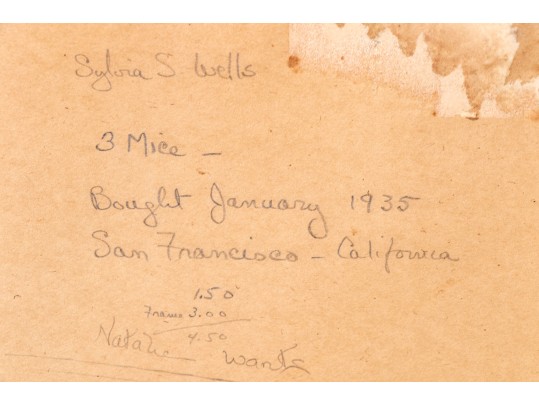 Sylvia S. Wells
3 Mice –
Bought January 1935
San Francisco – California
1.50
Frame 3.00
4.50
Natalie wants